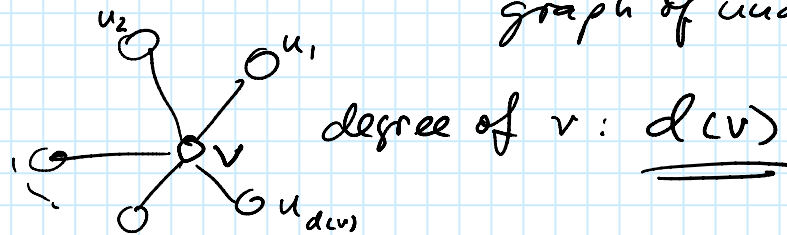 graph of
u₂
u₁
degree of v : d(v)
v
u_d(v)